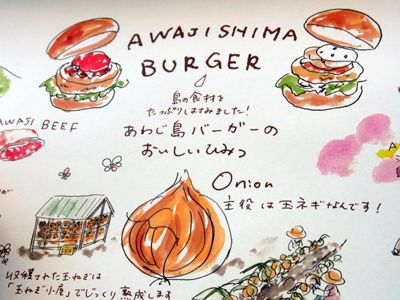 AWAJISHIMA
BURGER
島の食材を
たっぷりはさみました!
あわじ島バーガーの
おいしいひみつ
AWAJI BEEF
Onion
主役は玉ネギなんです!
収穫された玉ねぎは
「玉ねぎ小屋」でじっくり熟成します